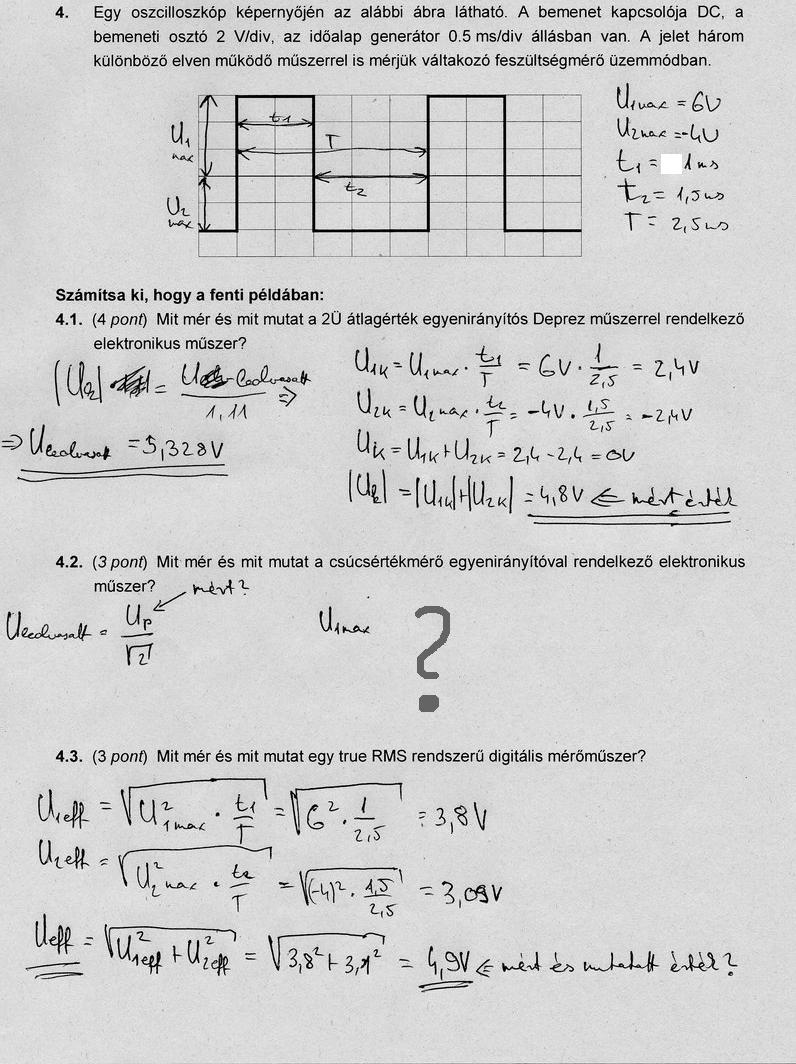 4. Egy oszcilloszkóp képernyőjén az alábbi ábra látható. A bemenet kapcsolója DC, a
bemeneti osztó 2 V/div, az időalap generátor 0.5 ms/div állásban van. A jelet három
különböző elven működő műszerrel is mérjük váltakozó feszültségmérő üzemmódban.
U1max = 6V
U2max = -4V
t1 = 1ms
t2 = 1,5ms
T = 2,5ms
t1
T
t2
U1 max
U2 max
Számítsa ki, hogy a fenti példában:
4.1. (4 pont) Mit mér és mit mutat a 2Ü átlagérték egyenirányítós Deprez műszerrel rendelkező
elektronikus műszer?
|Uk| = U leolvasott / 1,11 ⇒
⇒ Uleolvasott = 5,328V
U1k = U1max · t1/T = 6V · 1/2,5 = 2,4V
U2k = U2max · t2/T = -4V · 1,5/2,5 = -2,4V
Uk = U1k + U2k = 2,4 - 2,4 = 0V
|Uk| = |U1k|+|U2k| = 4,8V ⇐ mért érték
4.2. (3 pont) Mit mér és mit mutat a csúcsértékmérő egyenirányítóval rendelkező elektronikus
műszer?
mért?
Uleolvasott = Up/√2
U1max
?
4.3. (3 pont) Mit mér és mit mutat egy true RMS rendszerű digitális mérőműszer?
U1eff = √(U²1max · t1/T) = √(6² · 1/2,5) = 3,8V
U2eff = √(U²2max · t2/T) = √((-4)² · 1,5/2,5) = 3,09V
Ueff = √(U²1eff + U²2eff) = √(3,8² + 3,1²) = 4,9V ⇐ mért és mutatott érték?